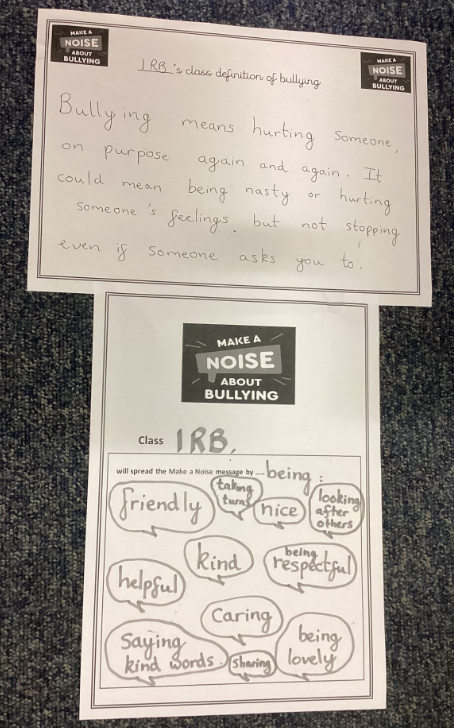 MAKE A
NOISE
ABOUT
BULLYING
MAKE A
NOISE
ABOUT
BULLYING
1RB's class definition of bullying
Bullying means hurting someone,
on purpose again and again. It
could mean being nasty or hurting
someone's feelings, but not stopping
even if someone asks you to.
MAKE A
NOISE
ABOUT
BULLYING
Class 1RB.
will spread the Make a Noise message by .... being :
friendly
taking
turns
nice
looking
after
others
kind
being
respectful
helpful
Caring
Saying
kind words.
Sharing
being
lovely